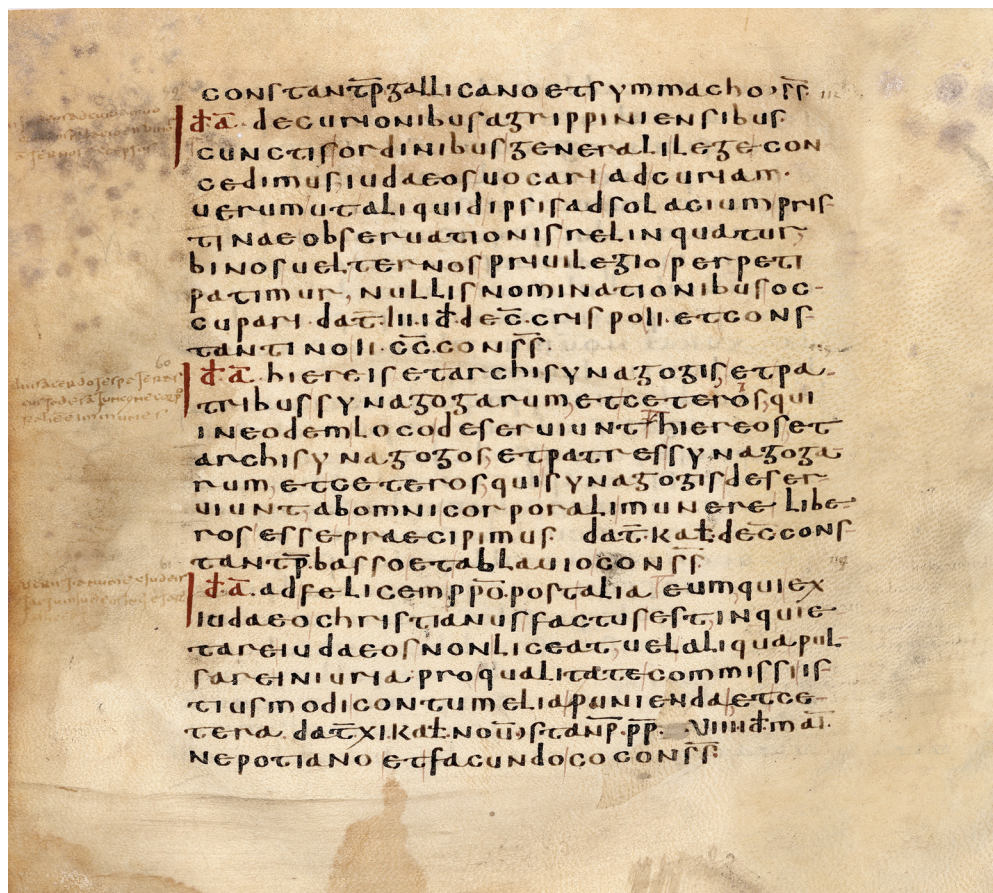 constantp̄ gallicano et symmacho · s̄s̄
id̄ ā decurionibus agrippiniensibus
cunctis ordinibus generali lege con
cedimus iudaeos uocari ad curiam·
uerum ut aliquid ipsis ad solacium pris
tinae obseruationis relinquatur
binos uel ternos priuilegio perpeti
patimur, nullis nominationibus oc-
cupari· dat̄ · III · id̄ dec̄ · crispo II · et cons
tantino II · c̄c̄ · cons̄s̄ ·
id̄ ā · hiereis et archisynagogis et pa
tribus synagogarum et ceteros qui
in eodem loco deseruiunt hiereos et
archisynagogos et patres synagoga
rum et ceteros qui synagogis deser
uiunt ab omni corporali munere libe
ros esse praecipimus dat̄ kal̄ dec̄ cons
tantp̄ · basso et ablauio cons̄s̄
id̄ ā · ad felicem pp̄ō · post alia eum qui ex
iudaeo christianus factus est inquie
tare iudaeos non liceat uel aliqua pul
sare iniuria pro qualitate commissi is
tius modi contumelia punienda et ce
tera dat̄ XI kal̄ nou̅ c̅stanp̄ · p̄p̄ · VIIII id̄ mai
nepotiano et facundo co cons̄s̄